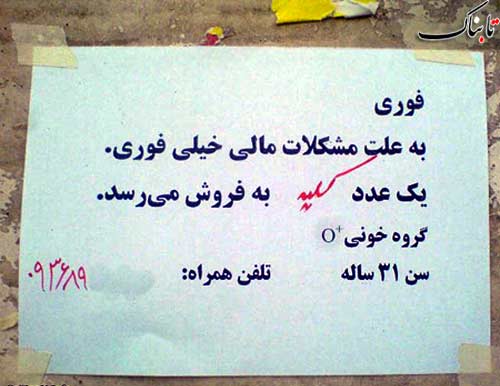 تابناک
فوری
به علت مشکلات مالی خیلی فوری.
یک عدد کلیه به فروش می‌رسد.
گروه خونی O+
سن ۳۱ ساله تلفن همراه: ۰۹۳۶۸۹